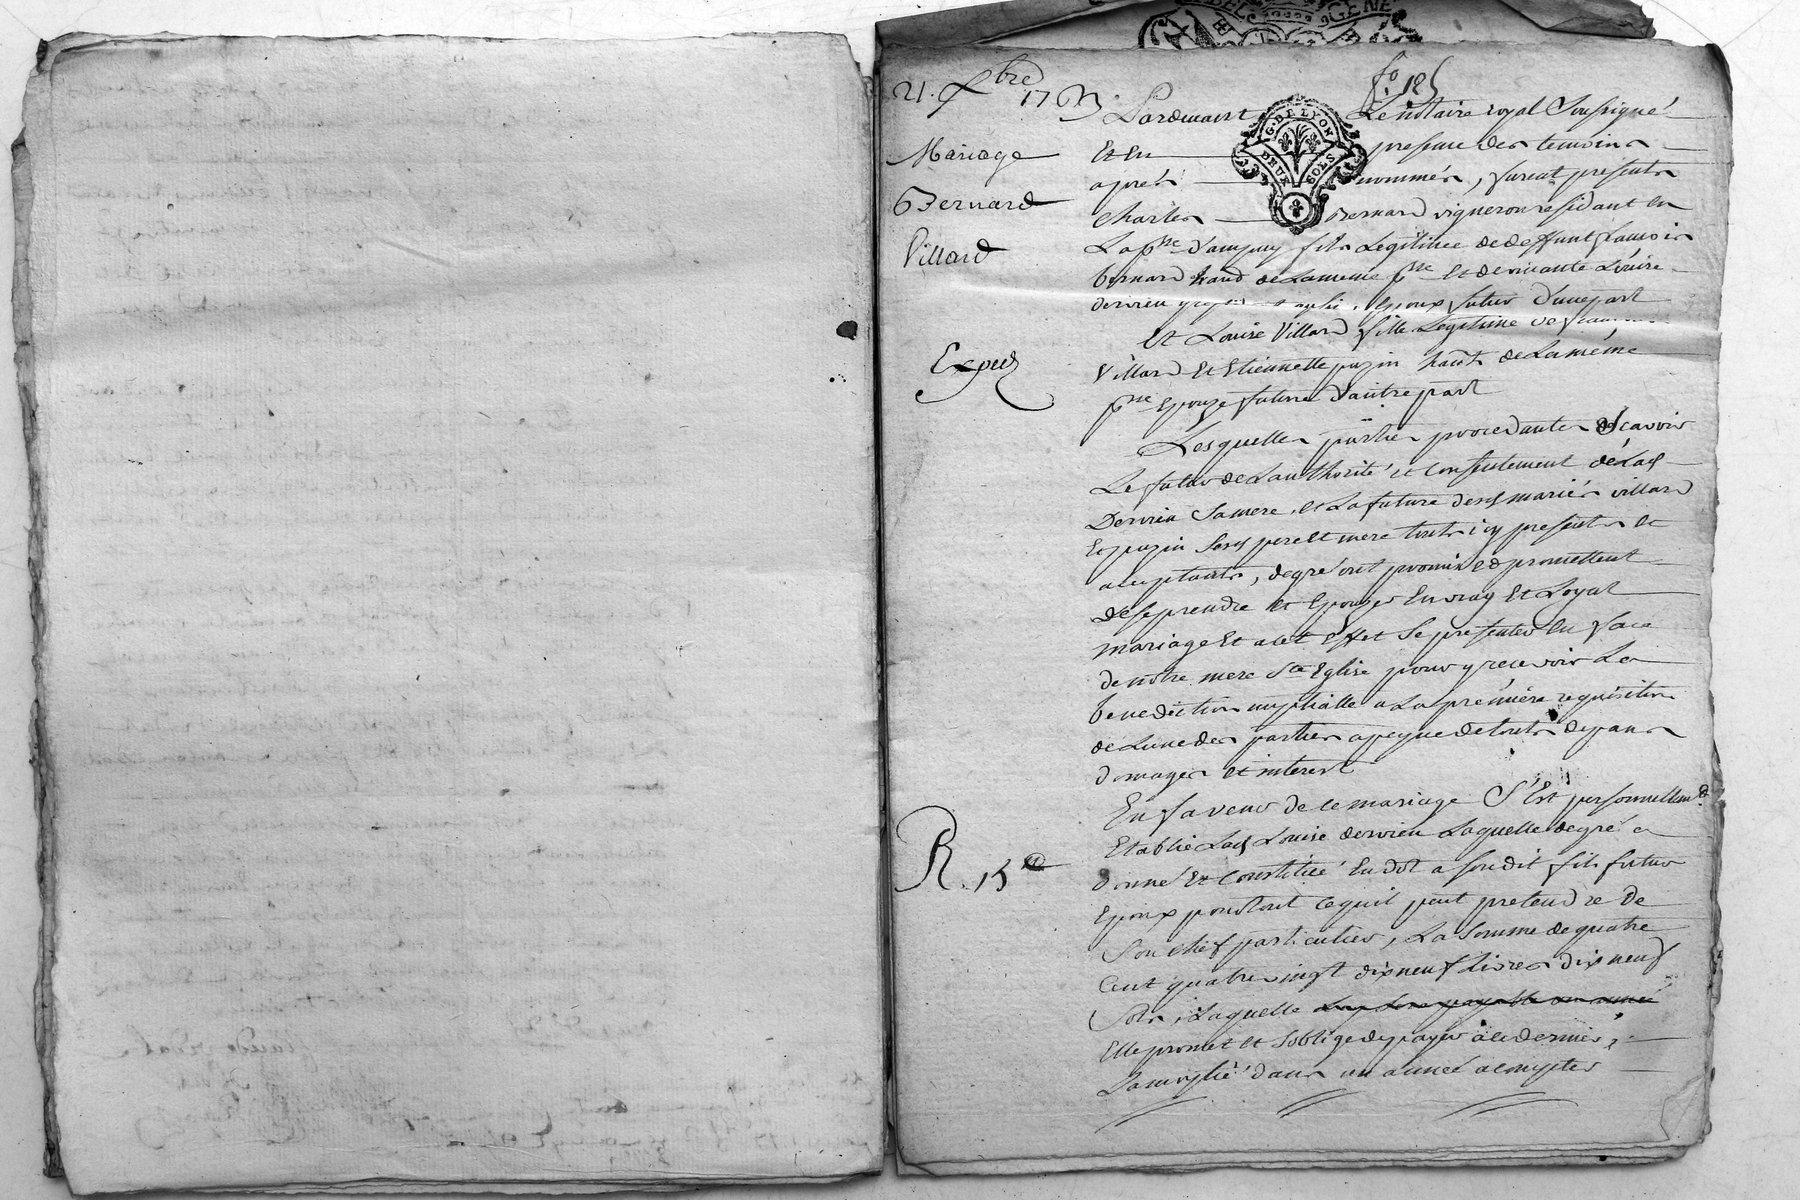 fo. 125
21. xbre 17
Mariage
Bernard
Villard
Exped
R. 15
G. DE LYON
DEUX SOLS
Pardevant Le notaire royal soussigné
Et En presence des temoins
apres nommés, furent presents
Charles Bernard vigneron residant en
La psse d'ampuy fils Legitime de deffunt francois
bernard hant de La meme psse et de vivante Loüise
dervieu epoux futur d'une part
Et Louise Villard fille Legitime de
Villard Et Etiennette pazin hants de La méme
psse Epouze future d'autre part
Lesquelles parties procedantes Scavoir
Le futur de L'authorité et Consentement de Lad
Dervieu Sa mere, et La future desd mariés villard
Et pazin Sesd pere et mere touts icy presents et
acceptants, de gré ont promis et promettent
de se prendre et Epouzer En vray Et Loyal
mariage Et a cet Effet Se presenter En face
de notre mere Ste Eglise pour y recevoir La
benediction nuptialle a La premiere requisition
de L'une des parties a peyne de touts depans
domages et interest
En faveur de ce mariage S'Est personnellemt
Etablie Lad Louise dervieu Laquelle de gré a
donné Et Constitué En dot a Son dit fils futur
Epoux pour tout ce quil peut pretendre de
Son chef particulier, La Somme de quatre
Cent quatre vingt dix neuf Livres dix neuf
Sols, Laquelle
Elle promet et S'oblige de payer a ce dernier,
La moytié dans un année a compter